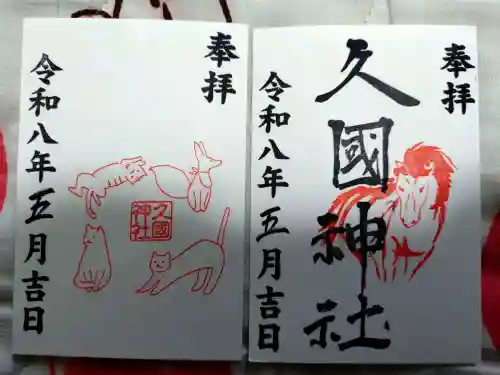 奉拝
久國神社
令和八年五月吉日
奉拝
久國神社
令和八年五月吉日